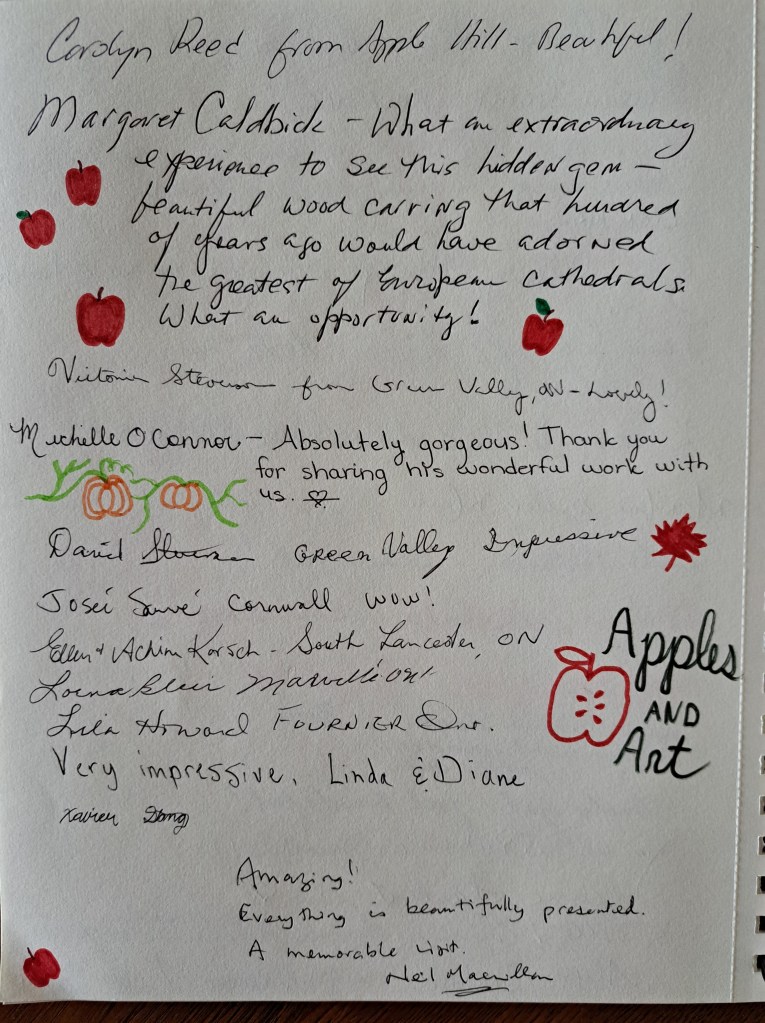 Carolyn Reed from Apple Hill - Beautiful!
Margaret Caldbick - What an extraordinary
experience to see this hidden gem -
beautiful wood carving that hundred
of years ago would have adorned
the greatest of European Cathedrals.
What an opportunity!
Victoria Stevenson from Green Valley, ON - Lovely!
Michelle O'Connor - Absolutely gorgeous! Thank you
for sharing his wonderful work with
us.
David Green Valley Impressive
Joseé Sauvé Cornwall WOW!
Ellen + Achim Korsch - South Lancaster, ON
Lorna
Lila Howard FOURNIER Ont.
Very impressive. Linda & Diane
Xavier
Apples
AND
Art
Amazing!
Everything is beautifully presented.
A memorable visit.
Neil Macmillan